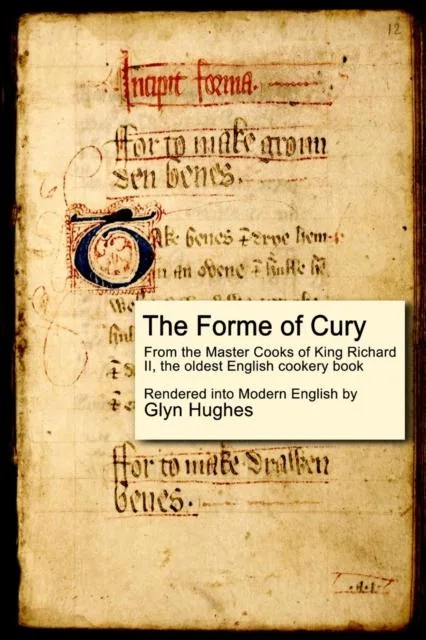 12
Incipit forma.
ffor to make groun
den benes.
Take benes & drye hem
in an ovene & hulle hē
The Forme of Cury
From the Master Cooks of King Richard
II, the oldest English cookery book
Rendered into Modern English by
Glyn Hughes
ffor to make drawen
benes.